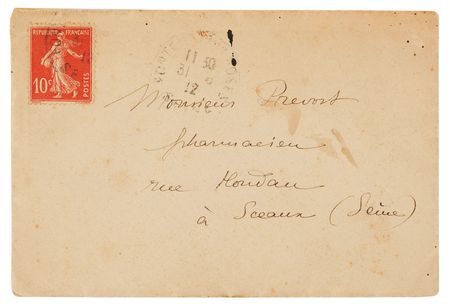 REPUBLIQUE FRANÇAISE
10c
POSTES
11 30
31
12
Monsieur Prevost
pharmacien
rue Houdan
à Sceaux (Seine)